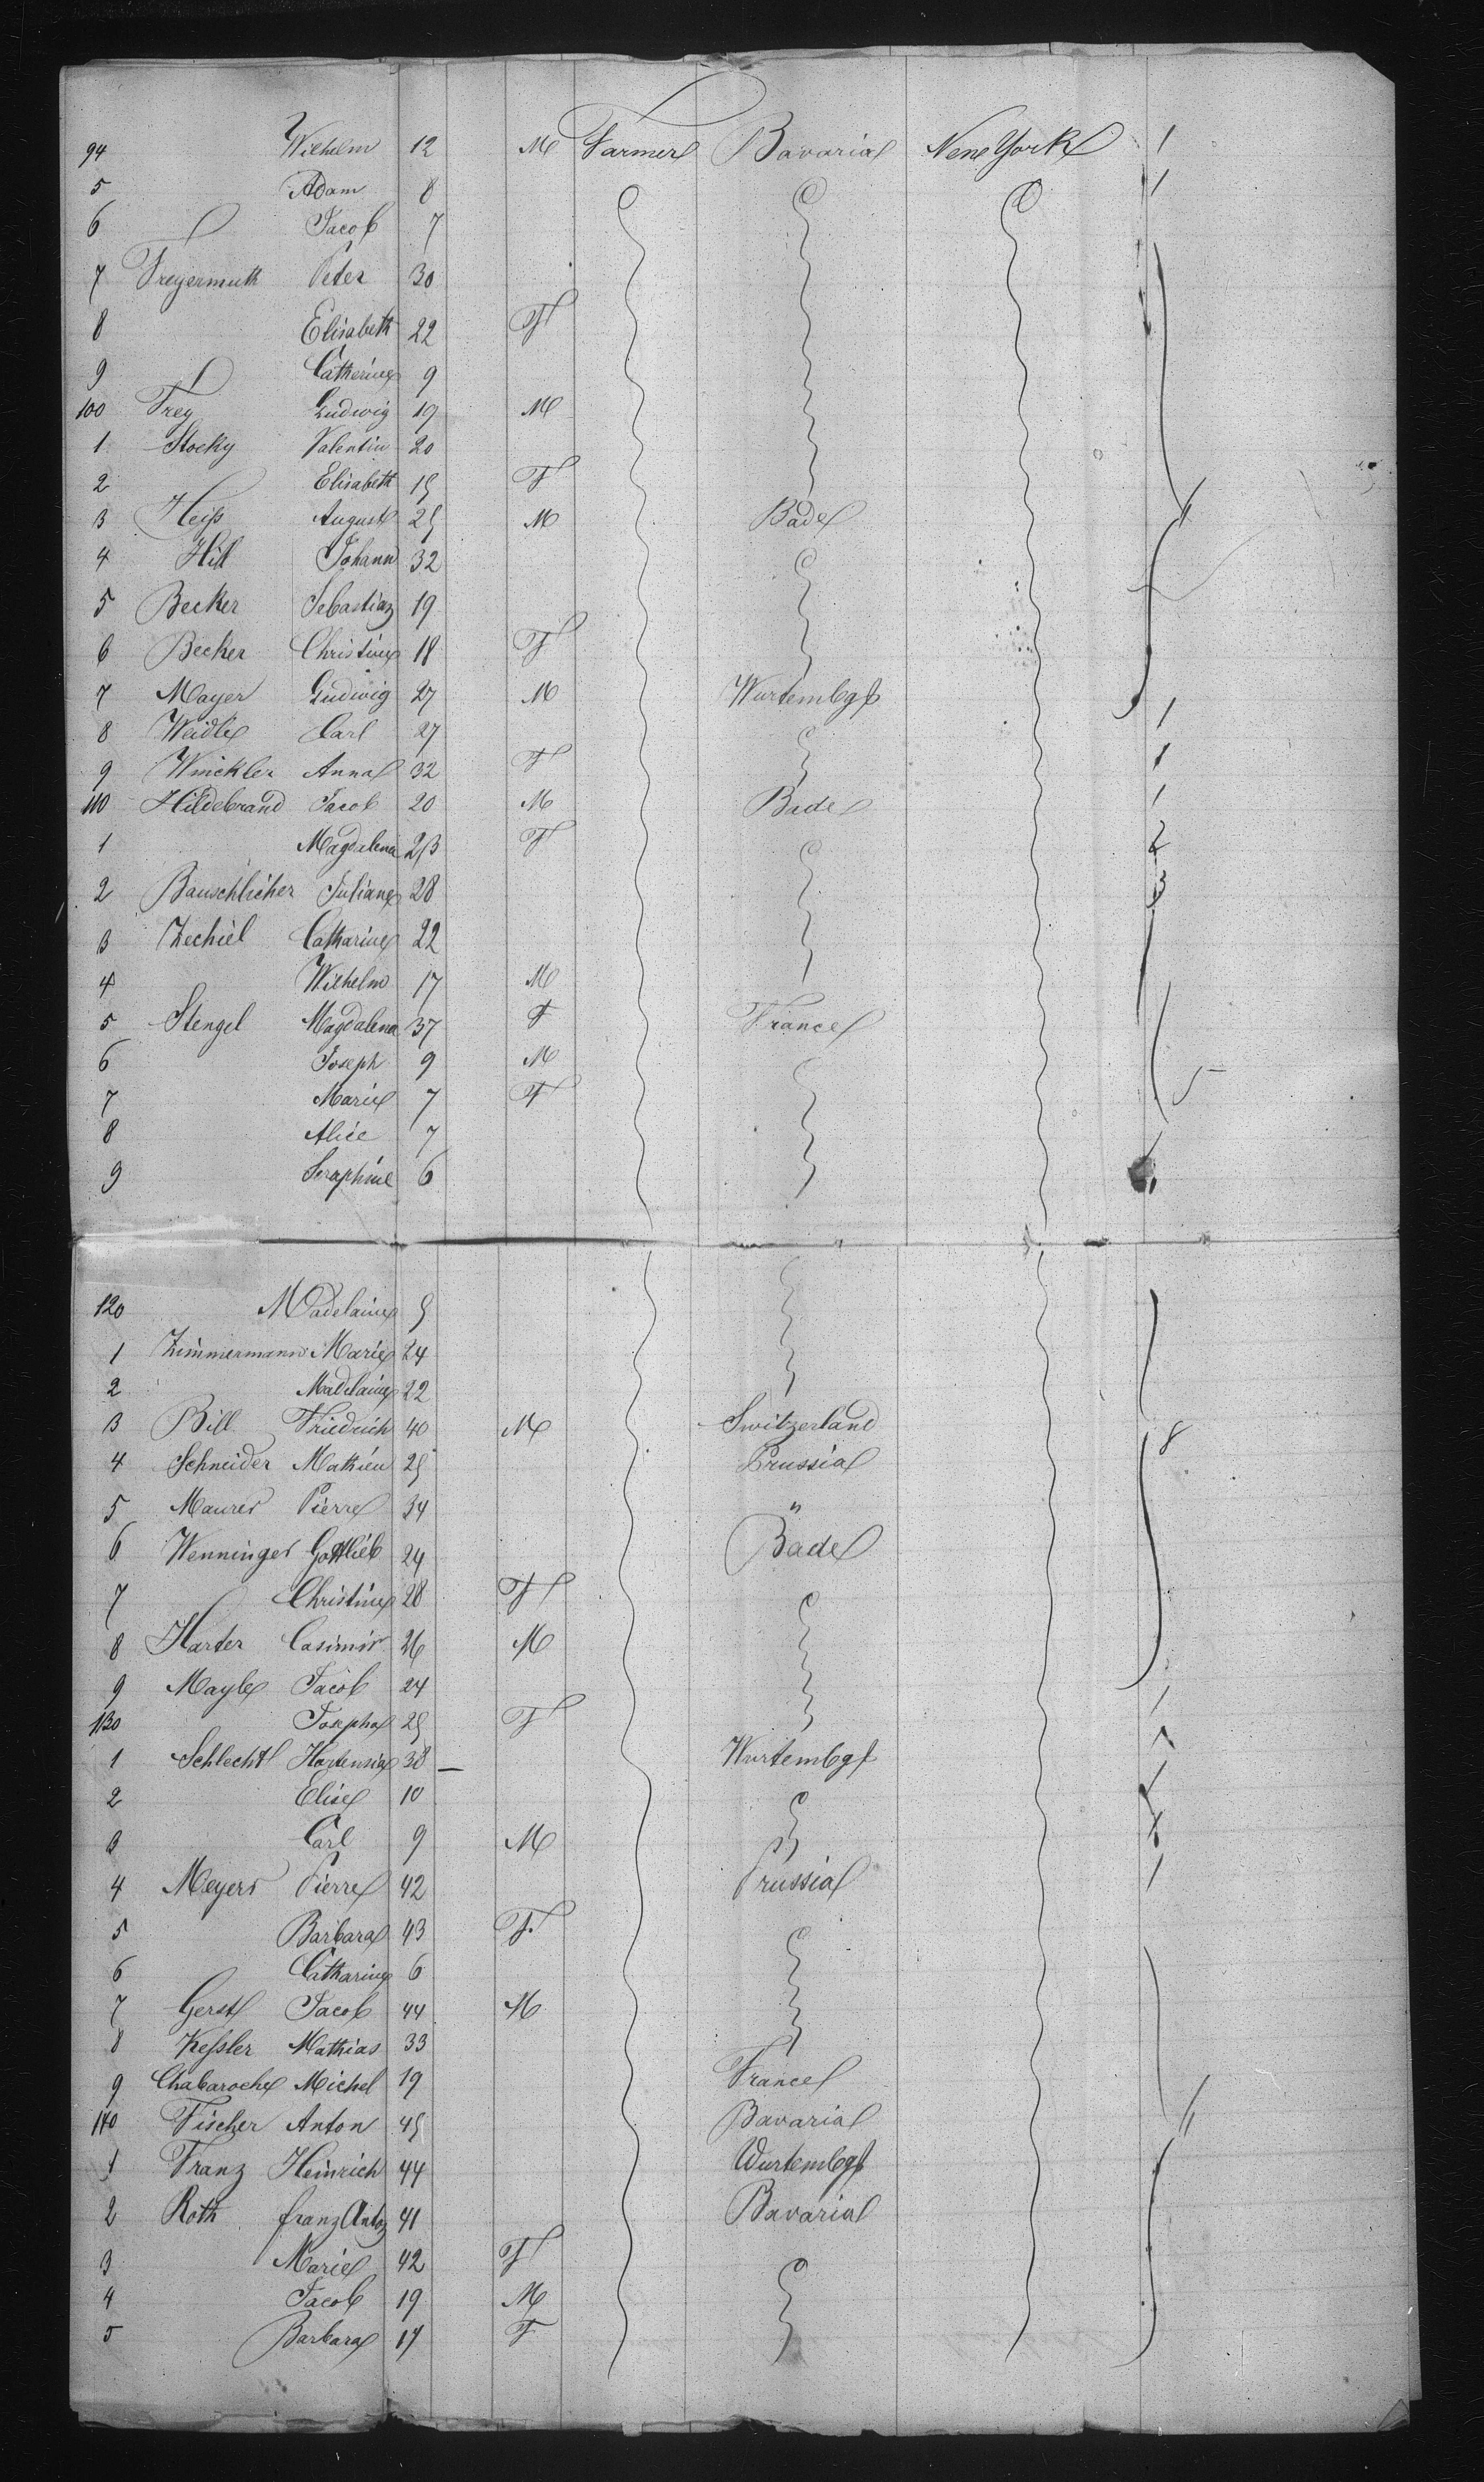 94 Wilhelm 12 M Farmer Bavaria New York 1
5 Adam 8 1
6 Jacob 7
7 Freyermuth Peter 30
8 Elisabeth 22 F
9 Catherine 9
100 Frey Ludwig 19 M
1 Stocky Valentin 20
2 Elisabeth 15 F
3 Heiß August 25 M Bade
4 Hill Johann 32
5 Becker Sebastian 19
6 Becker Christine 18 F
7 Mayer Ludwig 27 M Wurtembg
8 Weidle Carl 27 1
9 Winckler Anna 32 F 1
110 Hildebrand Jacob 20 M Bade 1
1 Magdalena 23 F
2 Bauschlicher Juliane 28
3 Zechiel Catharine 22
4 Wilhelm 17 M
5 Stengel Magdalena 37 F France
6 Joseph 9 M
7 Marie 7 F 5
8 Alice 7
9 Seraphine 6
120 Madelaine 5
1 Zimmermann Marie 24
2 Madelaine 22
3 Bill Friedrich 40 M Switzerland 8
4 Schneider Mathieu 25 Prussia
5 Maurer Pierre 34 "
6 Wenninger Gottlieb 24 Bade
7 Christine 28 F
8 Harter Casimir 26 M
9 Mayle Jacob 24
130 Josepha 25 F
1 Schlecht Hortensia 38 Wurtembg
2 Elise 10
3 Carl 9 M
4 Meyer Pierre 42 Prussia 1
5 Barbara 43 F.
6 Catharine 6
7 Gerst Jacob 44 M
8 Keßler Mathias 33
9 Chabaroche Michel 19 France
140 Fischer Anton 45 Bavaria
1 Franz Heinrich 44 Wurtembg
2 Roth franz Anton 41 Bavaria
3 Marie 42 F
4 Jacob 19 M
5 Barbara 17 F